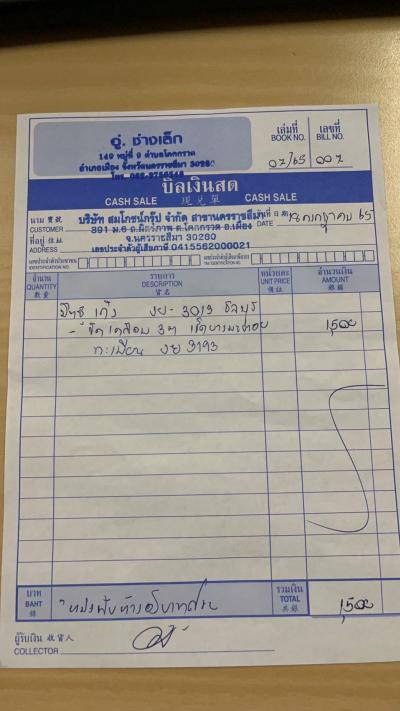 อู่. ช่างเล็ก
149 หมู่ที่ 9 ตำบลโคกกรวด
อำเภอเมือง จังหวัดนครราชสีมา 30280
โทร.
เล่มที่ เลขที่
BOOK NO. BILL NO.
07/65 007
บิลเงินสด
CASH SALE 現兑單 CASH SALE
นาม 寶號 บริษัท สมโภชน์กรุ๊ป จำกัด สาขานครราชสีมา วันที่ 日期
CUSTOMER 391 ม.6 ถ.มิตรภาพ ต.โคกกรวด อ.เมือง DATE กรกฎาคม 65
ที่อยู่ 住址 จ.นครราชสีมา 30280
ADDRESS เลขประจำตัวผู้เสียภาษี 0415562000021
เลขประจำตัวประชาชน เลขประจำตัวผู้เสียภาษีอากร
IDENTIFICATION NO. TAX IDENTIFICATION NO.
จำนวน รายการ หน่วยละ จำนวนเงิน
QUANTITY DESCRIPTION UNIT PRICE AMOUNT
數量 貨名 價錢 銀額
3013 ชลบุรี
1,500
ทะเบียน 3193
บาท รวมเงิน
BAHT หนึ่งพันห้าร้อยบาทถ้วน TOTAL 1,500
銖 共銀
ผู้รับเงิน 收貨人
COLLECTOR